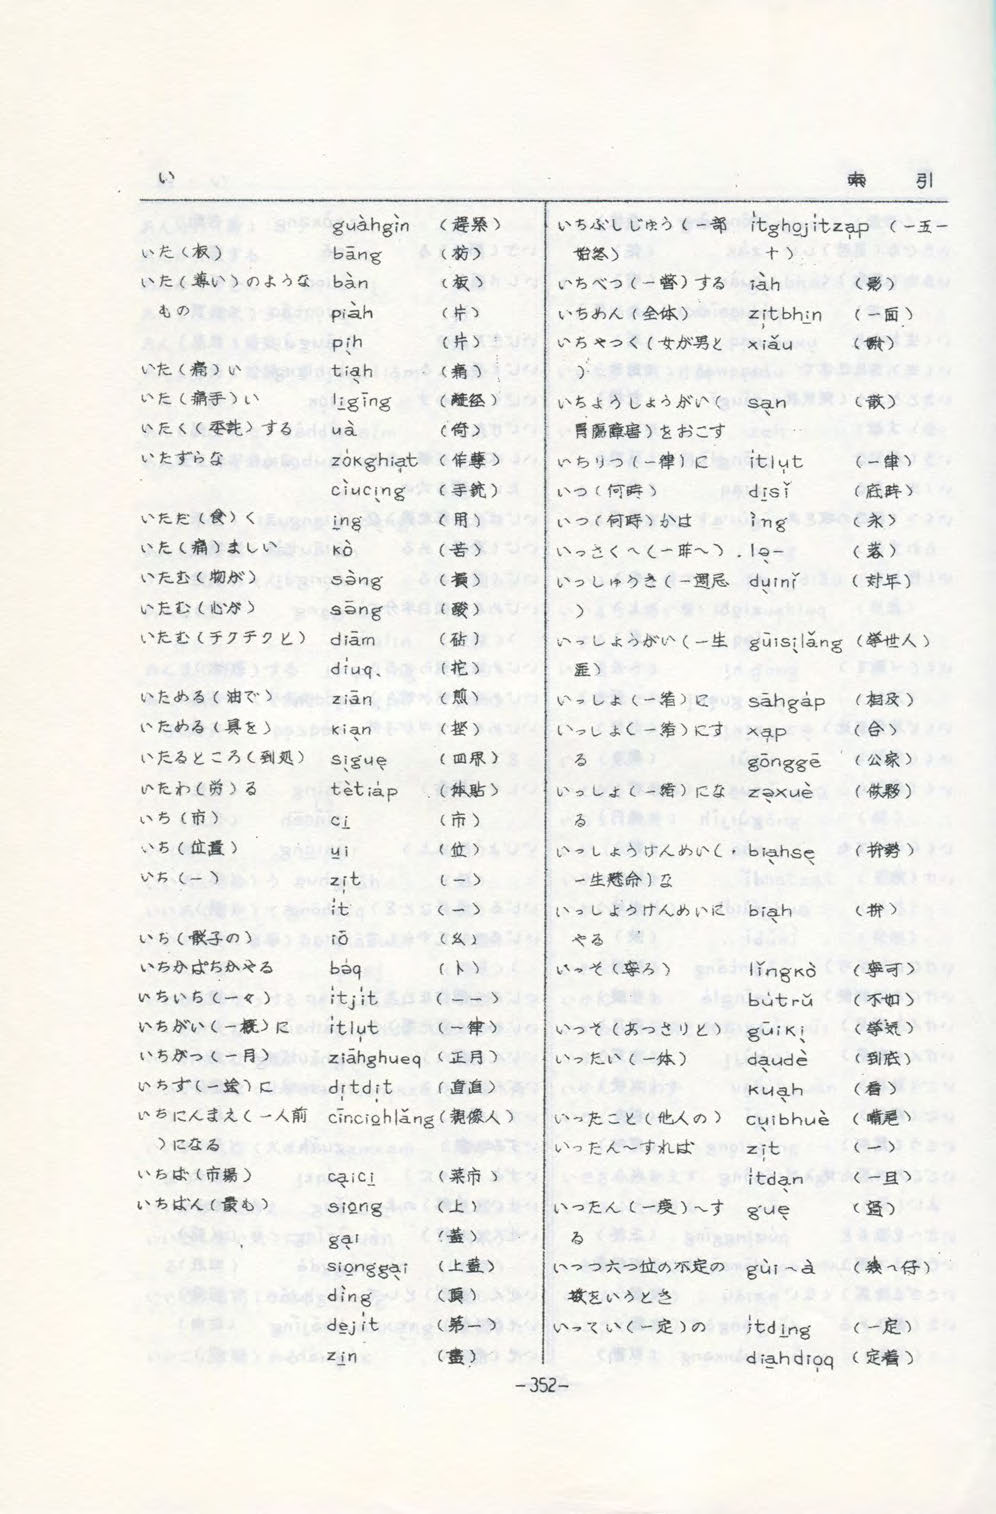 い 索 引
guàhgìn (趕緊)
いた(板) bāng (枋)
いた(薄い)のような bàn (板)
もの piàh (片)
pịh (片)
いた(痛)い tiạh (痛)
いた(痛手)い lịgīng
いたく(委託)する uà (倚)
いたずらな zȯkghiạt (作孽)
cìucịng (手銃)
いただ(食)く i̱ng (用)
いた(痛)ましい kò (苦)
いたむ(物が) sèng (損)
いたむ(心が) sēng (酸)
いたむ(チクチクと) diām (砧)
diuq
いためる(油で) ziān (煎)
いためる(具を) kiạn
いたるところ(到処) sịguẹ (四界)
いたわ(労)る tètiȧp (体貼)
いち(市) ci̱ (市)
いち(位置) u̱i (位)
いち(一) zịt (一)
it (一)
いち(骰子の) iō (幺)
いちかばちかやる bȧq (卜)
いちいち(一々) itjit (一一)
いちがい(一概)に itlụt (一律)
いちがつ(一月) ziāhghueq (正月)
いちず(一途)に dịtdịt (直直)
いちにんまえ(一人前 cīncio̱hlǎng (親像人)
)になる
いちば(市場) cạici̱ (菜市)
いちばん(最も) sio̱ng (上)
gại (蓋)
sio̱nggại (上蓋)
dìng (頂)
de̱jit (第一)
zi̱n (盡)
いちぶしじゅう(一部 itgho̱jitzạp (一五一
始終) 十)
いちべつ(一瞥)する iàh (影)
いちめん(全体) zịtbhi̱n (一面)
いちゃつく(女が男と xiǎu (嬲)
)
いちょうしょうがい( sạn (散)
胃腸障害)をおこす
いちりつ(一律)に itlụt (一律)
いつ(何時) di̱sǐ (底時)
いつ(何時)かは ìng (永)
いっさく〜(一昨〜) lo̱- (落)
いっしゅうき(一週忌 dụinǐ (対年)
)
いっしょうがい(一生 gūisịlǎng (挙世人)
涯)
いっしょ(一緒)に sāhgȧp (相及)
いっしょ(一緒)にす xạp (合)
る gōnggē (公家)
いっしょ(一緒)にな zo̱xuè (做夥)
る
いっしょうけんめい( biạhsẹ (拚勢)
一生懸命)な
いっしょうけんめいに biạh (拚)
やる
いっそ(寧ろ) lǐngkò (寧可)
butrǔ (不如)
いっそ(あっさりと) gūikị (挙気)
いったい(一体) dạudè (到底)
kuạh (看)
いったこと(他人の) cụibhuè (嘴尾)
いったん〜すれば zịt (一)
itdạn (一旦)
いったん(一度)〜す guẹ (過)
る
いつつ六つ位の不定の gùi〜à (幾〜仔)
数をいうとき
いってい(一定)の itdi̱ng (一定)
dia̱hdiọq (定着)
-352-